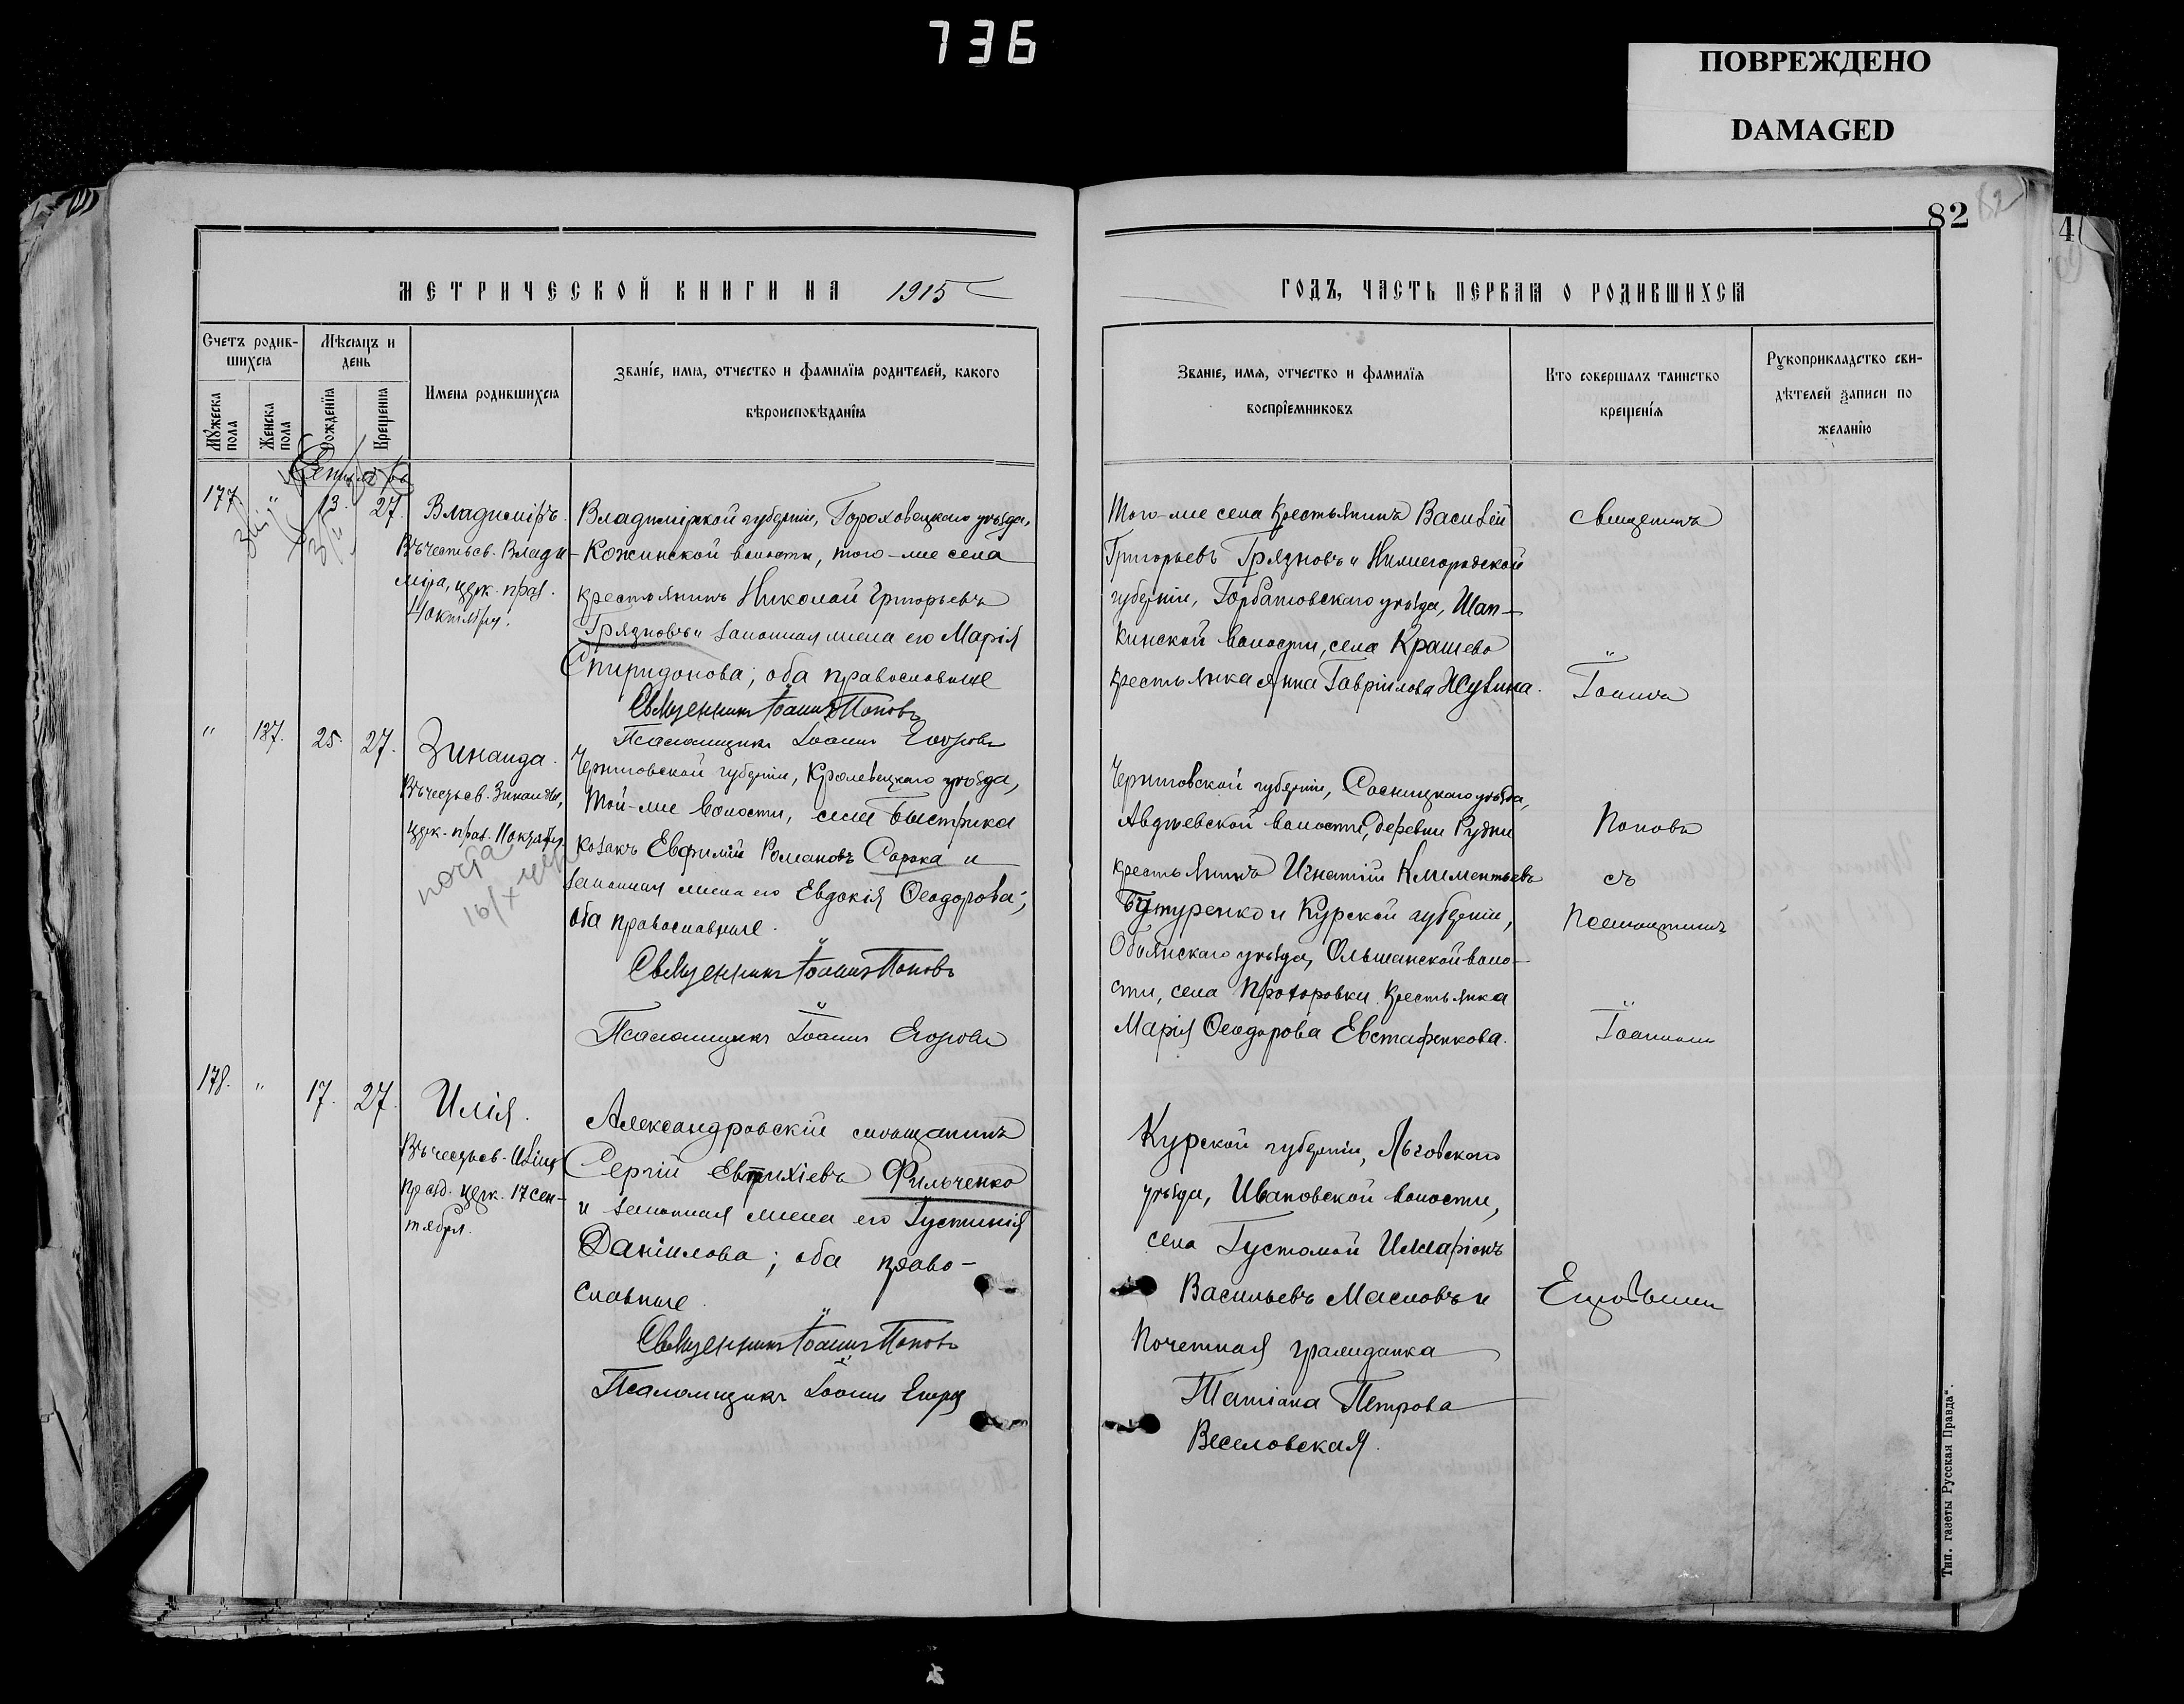 736
ПОВРЕЖДЕНО
DAMAGED
82
82
4
МЕТРИЧЕСКОЙ КНИГИ НА 1915
Счетъ родив-
шихся
Мужеска пола
Женска пола
Мѣсяцъ и
день
Рожденія
Крещенія
Имена родившихся
Званіе, имя, отчество и фамилія родителей, какого
вѣроисповѣданія
Сентябрь
177. " 13. 27. Владиміръ.
Въ честь св. Влади-
міра, церк. праз.
4 октября.
Владимірской губерніи, Гороховецкаго уѣзда,
Кожинской волости, того-же села
крестьянинъ Николай Григорьевъ
Грязновъ и законная жена его Марія
Спиридонова; оба православные
Священникъ Іоаннъ Поповъ
Псаломщикъ Іоаннъ Егоровъ
" 137. 25. 27. Зинаида.
Въ честь св. Зинаиды,
церк. праз. 11 октября.
16/X
Черниговской губерніи, Кролевецкаго уѣзда,
той-же волости, села Быстрика
козакъ Евфимій Романовъ Сорока и
законная жена его Евдокія Ѳеодорова;
оба православные.
Священникъ Іоаннъ Поповъ
Псаломщикъ Іоаннъ Егоровъ
178. " 17. 27. Илія.
Въ честь св. Иліи,
празд. церк. 17 сен-
тября.
Александровскій мѣщанинъ
Сергій Евтихіевъ Фильченко
и законная жена его Іустинія
Даніилова; оба право-
славные.
Священникъ Іоаннъ Поповъ
Псаломщикъ Іоаннъ Егоровъ
ГОДЪ, ЧАСТЬ ПЕРВАЯ О РОДИВШИХСЯ
Званіе, имя, отчество и фамилія
воспріемниковъ
Кто совершалъ таинство
крещенія
Рукоприкладство сви-
дѣтелей записи по
желанію
Того-же села крестьянинъ Василій
Григорьевъ Грязновъ и Нижегородской
губерніи, Горбатовскаго уѣзда, Шап-
кинской волости, села Крашево
крестьянка Анна Гавріилова
Черниговской губерніи, Сосницкаго уѣзда,
Авдѣевской волости, деревни Рудни
крестьянинъ Игнатій Климентьевъ
Бутуренко и Курской губерніи,
Обоянскаго уѣзда, Ольшанской воло-
сти, села Прохоровки крестьянка
Марія Ѳеодорова Евстафенкова.
Курской губерніи, Льговскаго
уѣзда, Ивановской волости,
села Густомой Илларіонъ
Васильевъ Масловъ и
почетная гражданка
Татіана Петрова
Веселовская.
Священникъ
Іоаннъ
Поповъ
съ
псаломщикомъ
Іоанномъ
Егоровымъ
Тип. газеты Русская Правда".